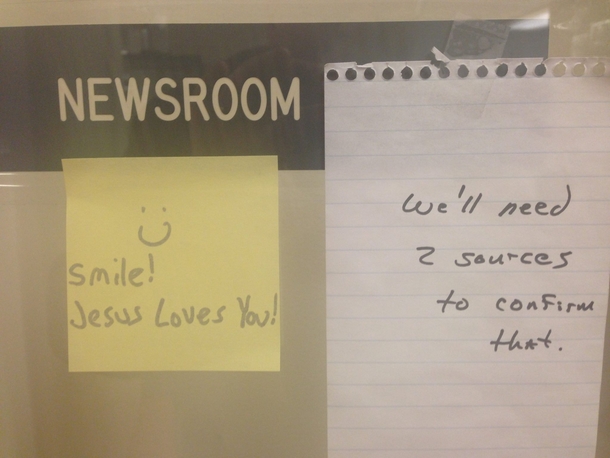 NEWSROOM
Smile!
Jesus Loves You!
We'll need
2 sources
to confirm
that.